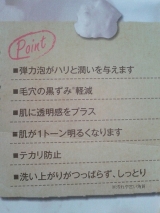 Point
■弾力泡がハリと潤いを与えます
■毛穴の黒ずみ*軽減
■肌に透明感をプラス
■肌が1トーン明るくなります
■テカリ防止
■洗い上がりがつっぱらず、しっとり